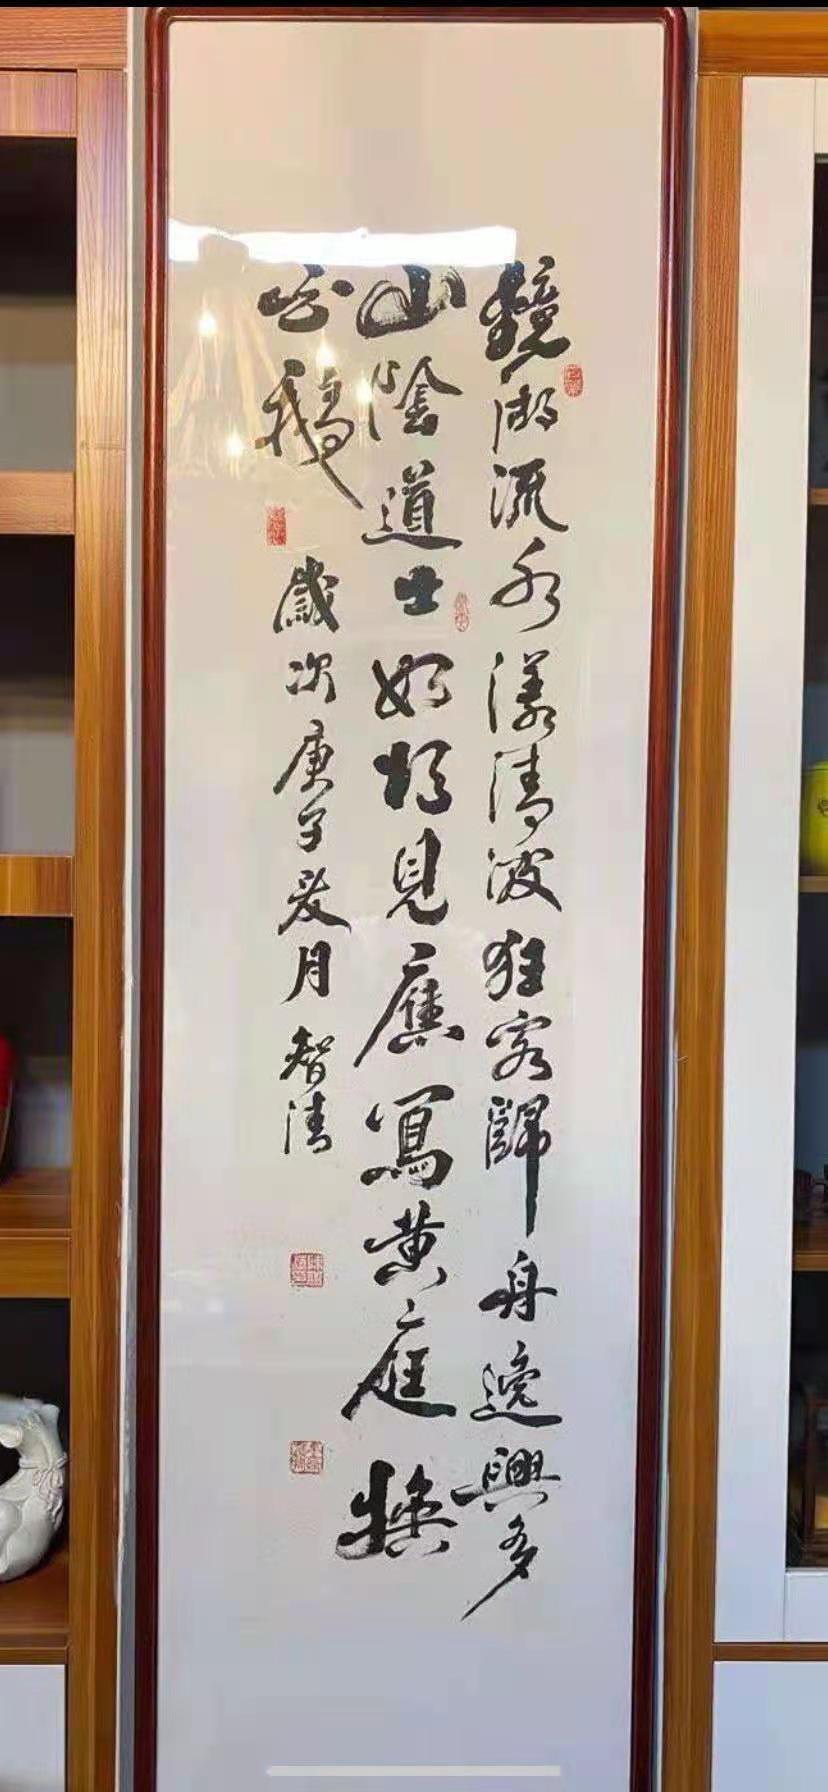 鏡湖流水漾清波狂客歸舟逸興多
山陰道士如相見應寫黃庭換
白鵝 歲次庚子夏月 智清